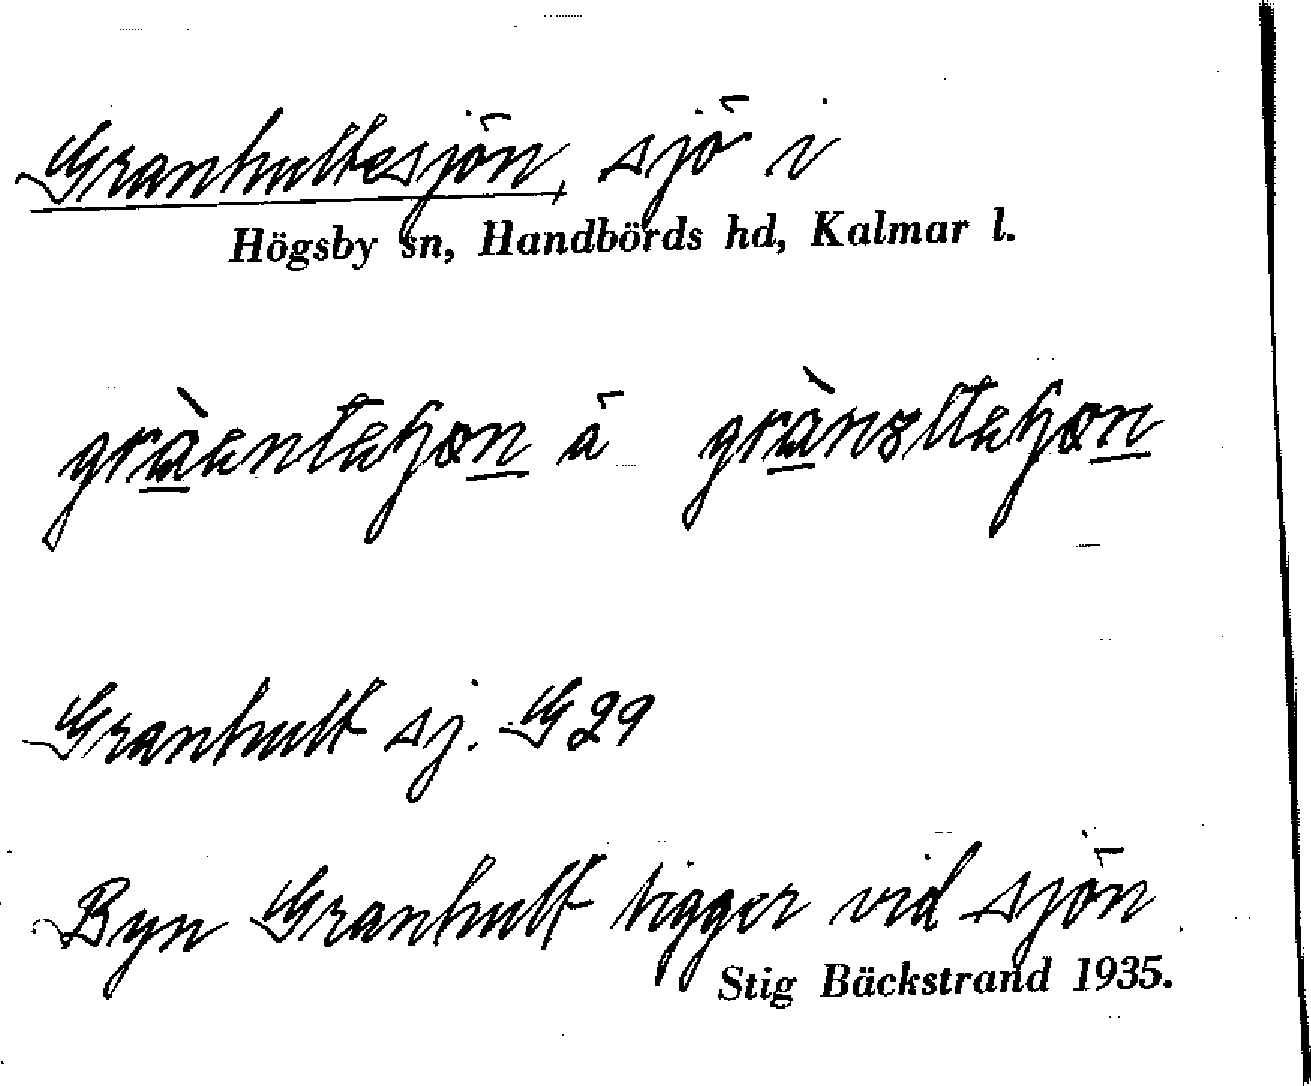 Granhultesjön, sjö i
Högsby sn, Handbörds hd, Kalmar l.
å
Granhult sj. G 29
Byn Granhult ligger vid sjön
Stig Bäckstrand 1935.